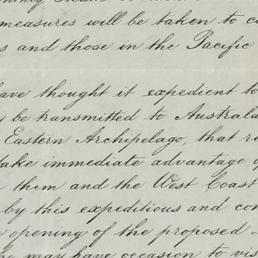 measures will be taken to c
s and those in the Pacific
have thought it expedient to
y be transmitted to Austral
Eastern Archipelago, that re
take immediate advantage o
them and the West Coast
by this expeditious and con
opening of the proposed
ho may have occasion to vis